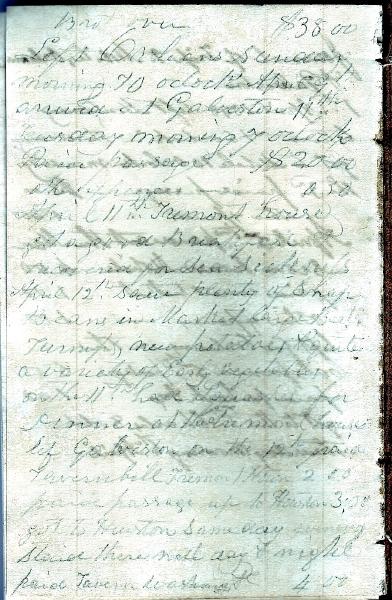 Bro't over $38.00
Left Orleans Sunday
morning 10 oclock April 9
arrived at Galveston 11th
Tuesday morning 7 oclock
Paid passage $20.00
other expenses 0.50
April 11th Tremont House
got a good Breakfast
April 12th saw plenty of Shugar
cane in Market
Turnips, new potatoes &
a variety of Early vegetables
on the 11th had for
Dinner at the Tremont house
left Galveston on the 12th paid
Tavern bill Tremont House 2.00
paid passage up to Houston 3.
got to Huston Same day evening
staid there next day & night
paid Tavern 4.00